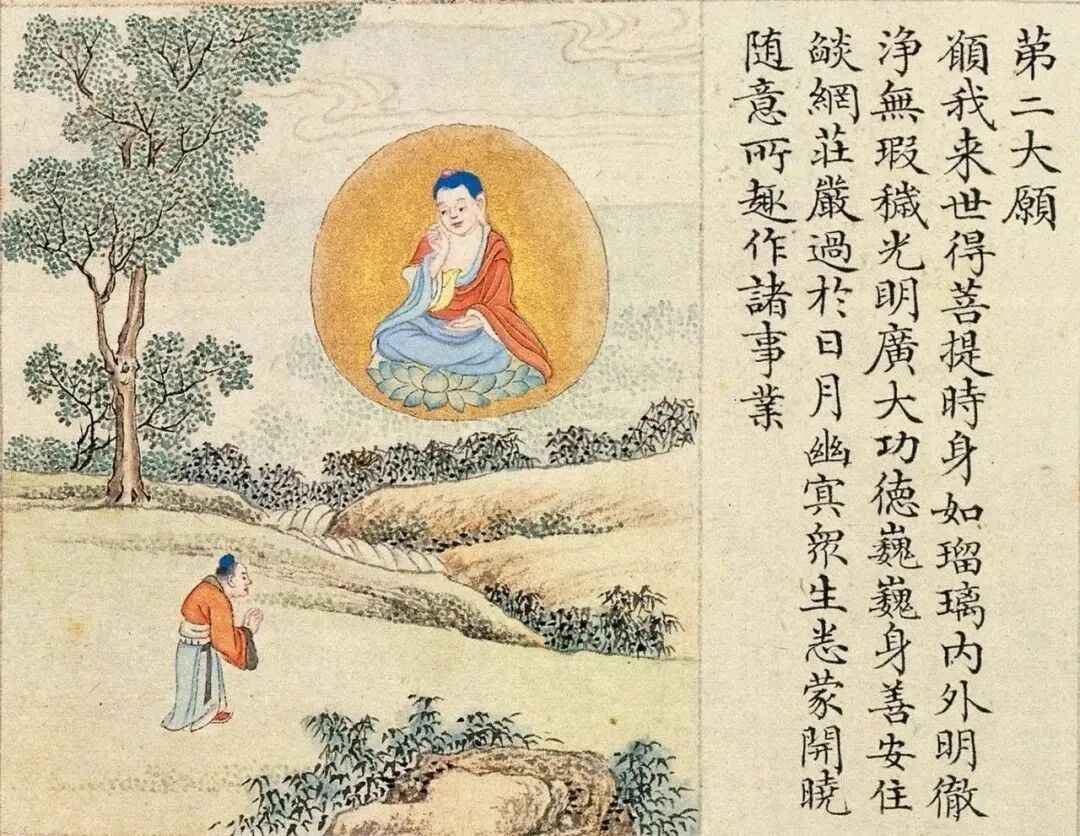 苐二大願
願我来世得菩提時身如瑠璃内外明徹
浄無瑕穢光明廣大功徳巍巍身善安住
燄網莊嚴過於日月幽㝠衆生悉蒙開曉
随意所趣作諸事業